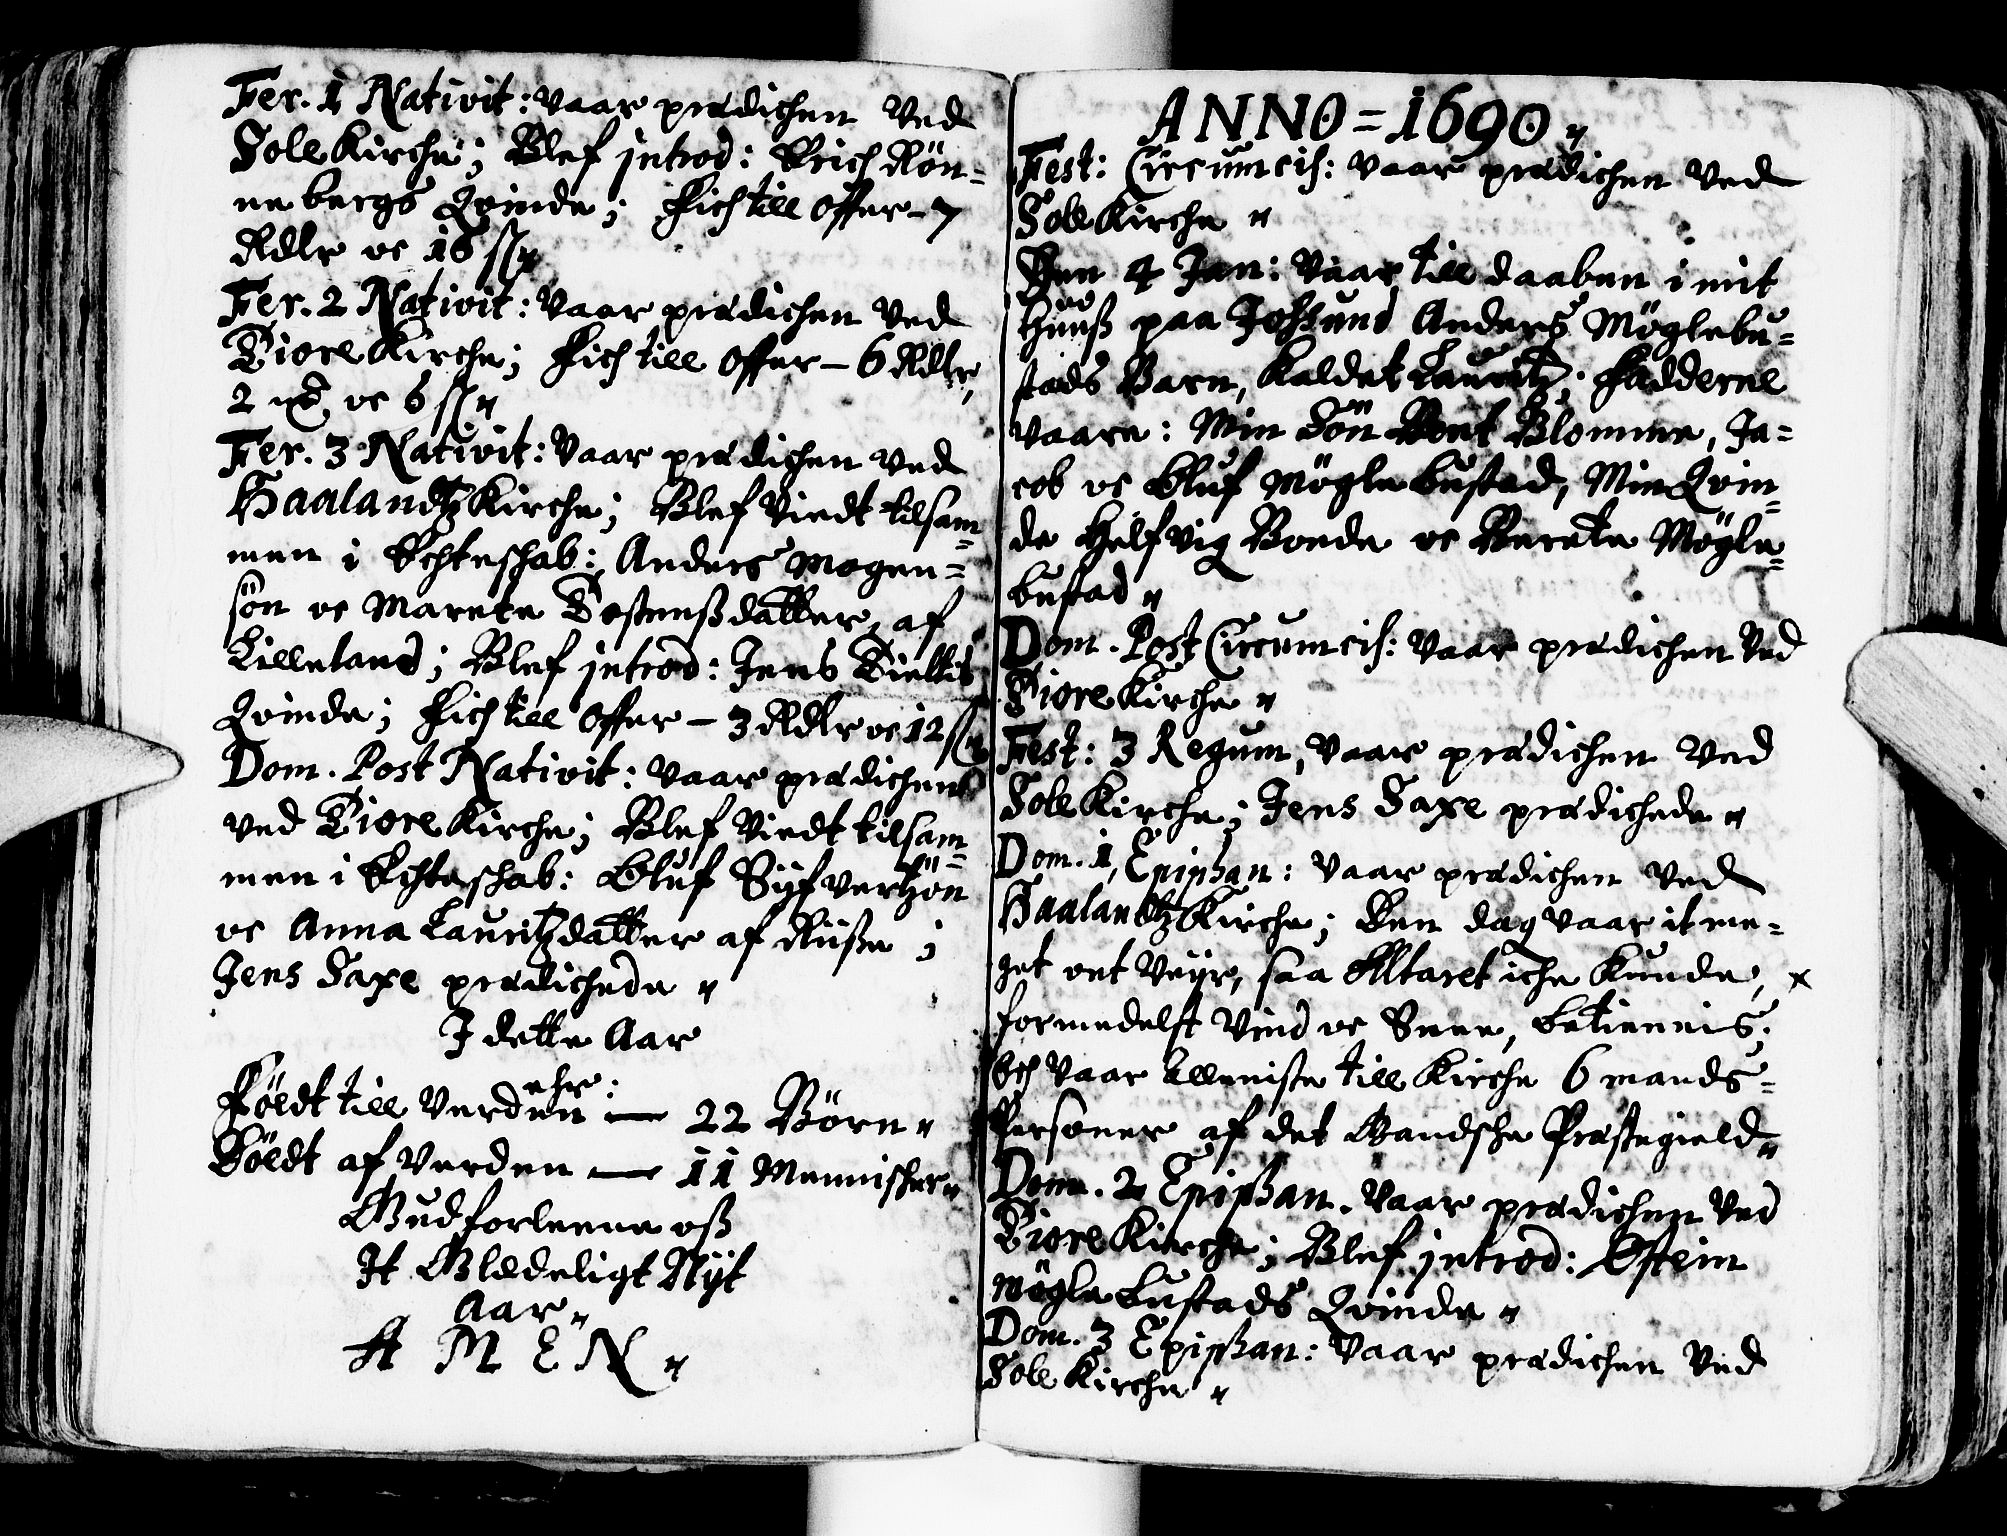 Fer. 1 Nativit: vaar prædichen ved
Sole Kirche; Blef introd: Erich Rön=
nebergs Qvinde; Fich till offer – 7
Rdlr oc 16 ß„
Fer. 2 Nativit: vaar prædichen ved
Tiore Kirche; Fich till offer – 6 Rdlr,
2 oc 6 ß„
Fer. 3 Nativit: vaar prædichen ved
Haalandtz Kirche; Blef viedt tilsam=
men i Echteschab: Anders Mogen=
sön oc Marete datter, af
Lilleland; Blef introd: Jens
Qvinde; Fich till offer – 3 Rdlr oc 12 ß„
Dom. Post Nativit: vaar prædichen
ved Tiore Kirche; Blef viedt tilsam=
men i Echteschab: Oluf Syfvertzön
oc Anna Lauritzdatter af Risse;
Jens Saxe prædichede „
I dette Aar
ehr:
Födt till Verden — 22 Börn„
Dödt af Verden — 11 Mennischer„
Gud forleene oss
It Glædeligt Nyt
Aar„
A M E N „
ANNO = 1690 „
Fest: Circumcis: vaar prædichen ved
Sole Kirche „
Den 4 Jan: vaar till daaben i mit
Huuss paa Jossund Anders Möglebu=
stads Barn, kaldet Lauritz; Fadderne
vaare: Min Sön Bent Blomme, Ja=
cob oc Oluf Möglebustad, Min Qvin=
de Helfvig Bonde oc Berete Mögle=
bustad „
Dom. Post Circumcis: vaar prædichen ved
Tiore Kirche „
Fest: 3 Regum, vaar prædichen ved
Sole Kirche; Jens Saxe prædichede „
Dom. 1, Epiphan: vaar prædichen ved
Haalandtz Kirche; Den dag vaar it me=
get ont Veyr, saa Altaret iche kunde, x
formedelst Vind oc Snee, betiennis;
Och vaar alleniste till Kirche 6 mands=
Personer af det Gandsche Præstegield„
Dom. 2 Epiphan. vaar prædichen ved
Tiore Kirche; Blef introd: Ostein
Möglebustads Qvinde „
Dom. 3 Epiphan: vaar prædichen ved
Sole Kirche „